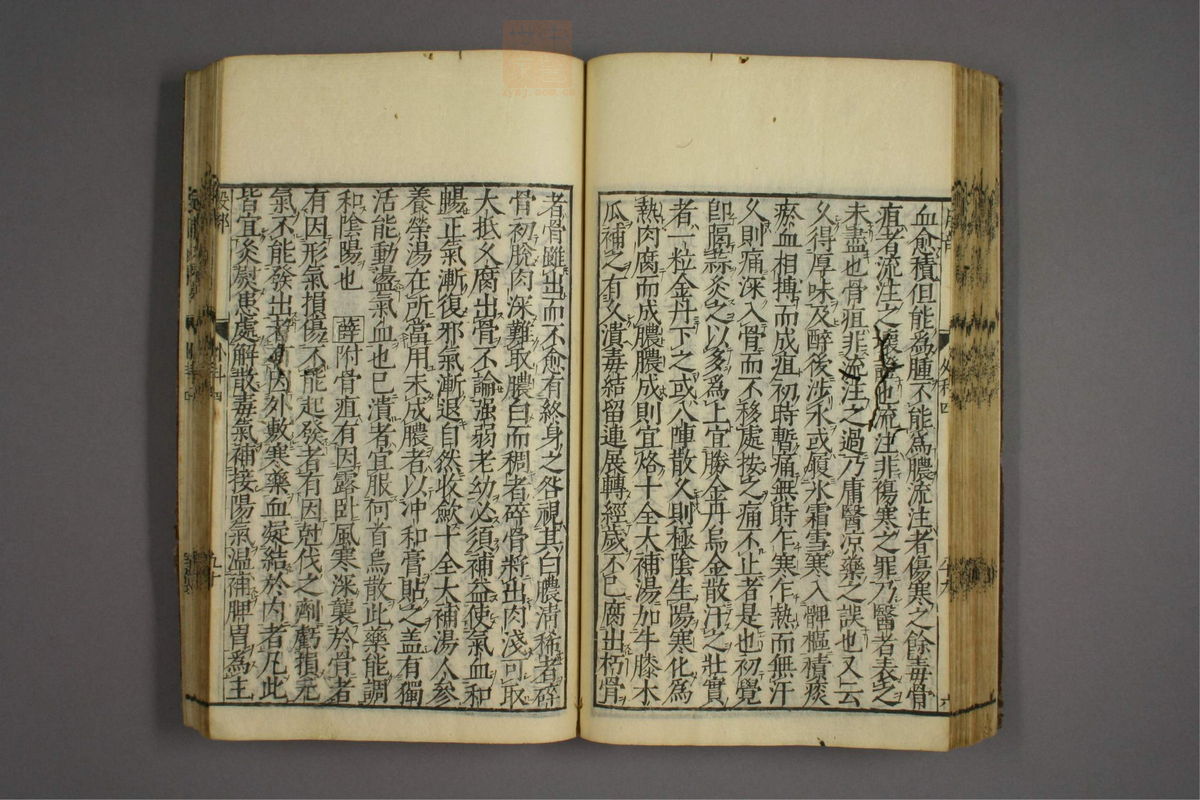 血愈積但能為腫不能為膿流注者傷寒之餘毒骨
疽者流注之壞也流注非傷寒之罪乃醫者表之
未盡也骨疽非流注之過乃庸醫凉藥之誤也又云
久得厚味及醉後涉水或履氷霜雪寒入髀樞積痰
瘀血相搏而成疽初時暫痛無時乍寒乍熱而無汗
久則痛深入骨而不移處按之痛不止者是也初覺
即隔蒜灸之以多為上宜勝金丹烏金散汗之壯實
者一粒金丹下之或八陣散久則極陰生陽寒化為
熱肉腐而成膿膿成則宜烙十全大補湯加牛膝木
瓜補之有久潰毒結留連展轉經歲不已腐出朽骨
者骨雖出而不愈有終身之咎視其臼膿淸稀者碎
骨初脫肉深難取膿白而稠者碎骨將出肉淺可取
大抵久腐出骨不論强弱老幼必須補益使氣血和
暢正氣漸復邪氣漸退自然收斂十全大補湯人參
養榮湯在所當用未成膿者以冲和膏貼之盖有獨
活能動盪氣血也已潰者宜服何首烏散此藥能調
和陰陽也 薛附骨疽有因露卧風寒深襲於骨者
有因形氣損傷不能起發者有因尅伐之劑虧損元
氣不能發出者有因外敷寒藥血凝結於内者凡此
皆宜灸熨患處解散毒氣補接陽氣温補脾胃為主